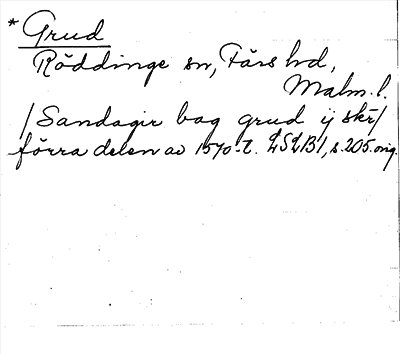 * Grud
Röddinge sn, Färs hd,
Malm. l.
/Sandagir bag grud ij skr/
förra delen av 1570-t. LSLB1, s. 205. orig.